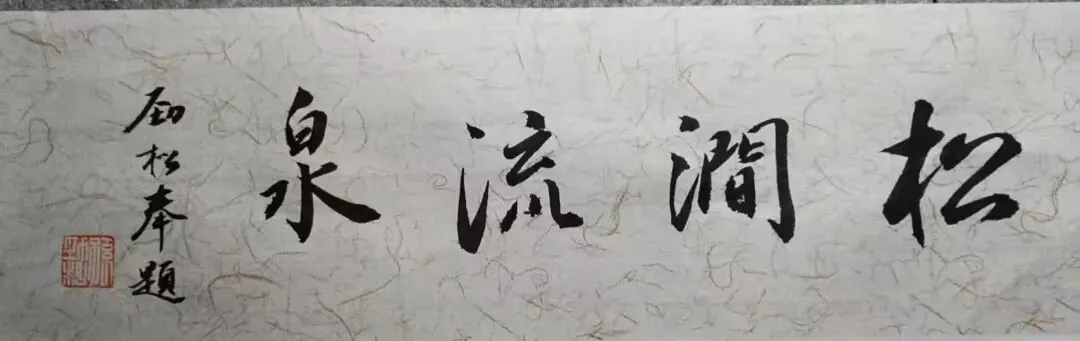 松澗流泉
劲松奉題